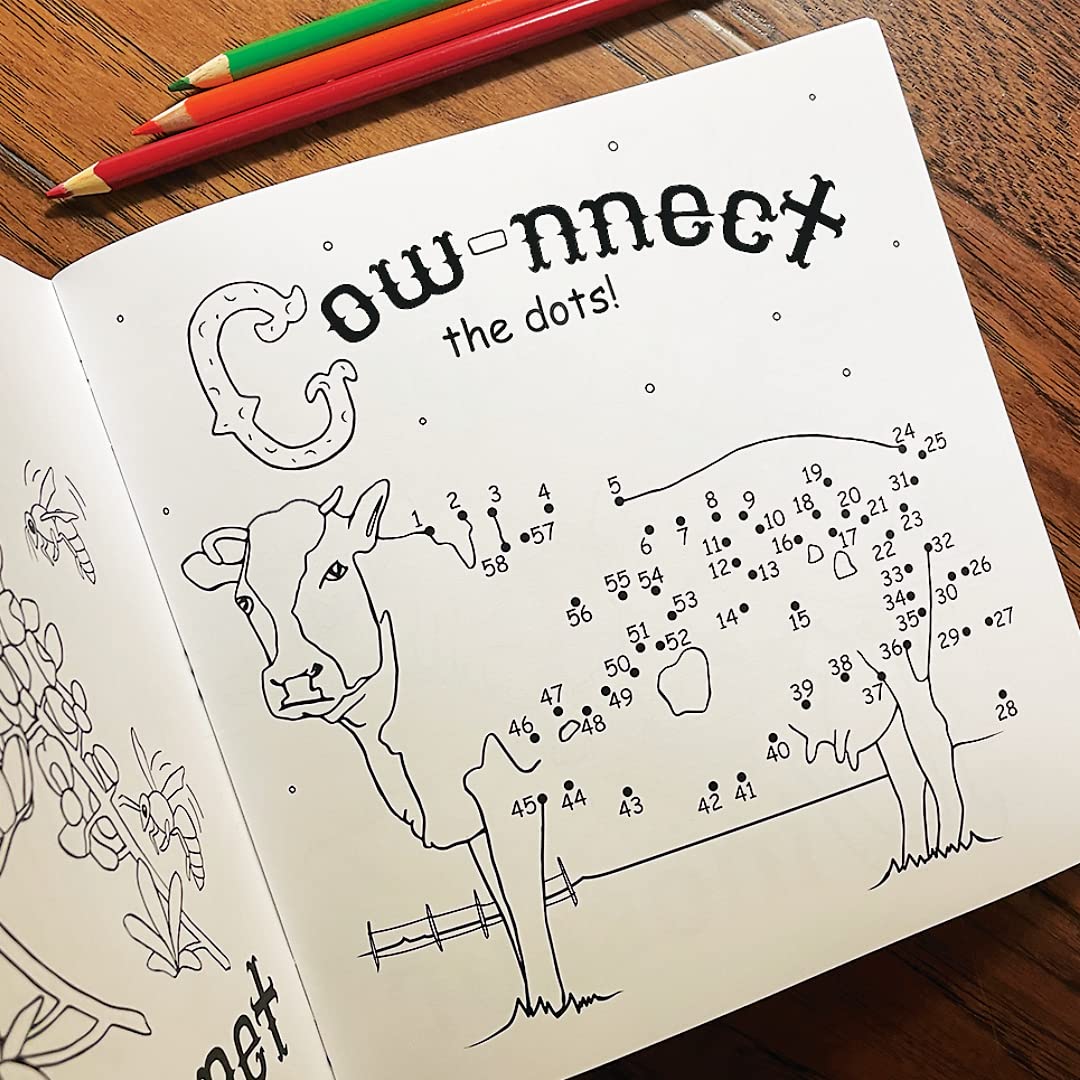 Cow-nnect
the dots!
24 25
2 3 4 5 19 31
1 57 8 9 18 20 21 23
58 6 7 11 10 16 17 22 32
12 13 33 26
55 54 34 30
56 53 14 15 35 27
51 52 36 29
50 38
47 49 39 37 28
46 48 40
45 44 43 42 41